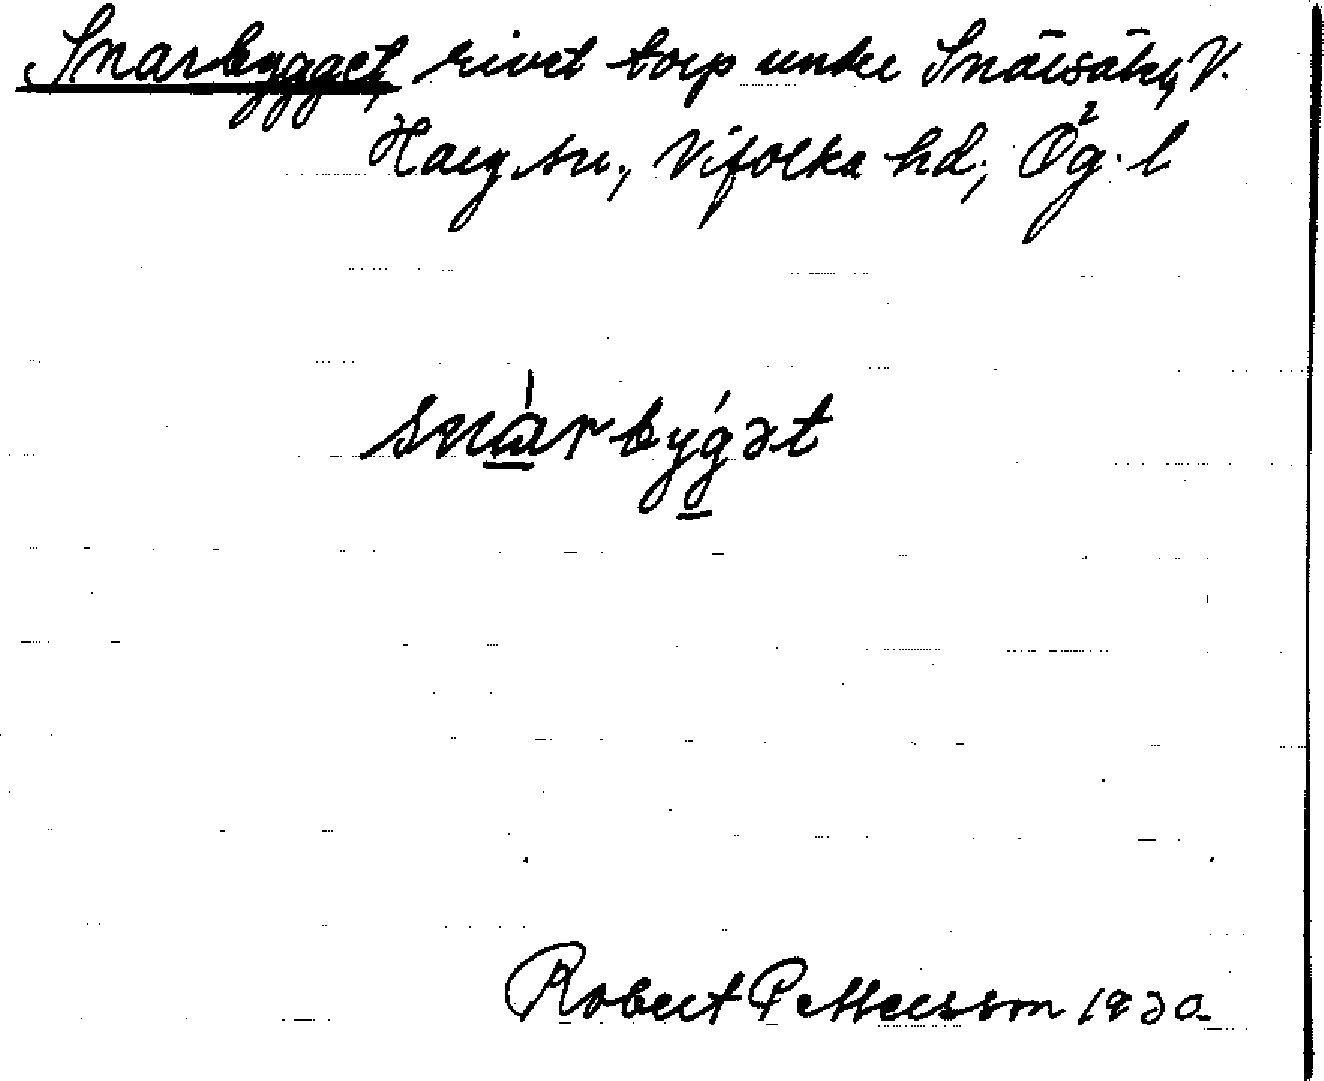 Snarbygget, rivet torp under Snärsäng, V.
Harg sn., Vifolka hd, Ög. l
snarbygət
Robert Pettersson 1930